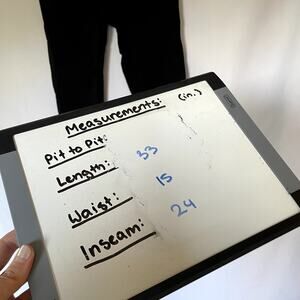 Measurements: (in.)
Pit to Pit:
Length: 33
Waist: 15
Inseam: 24